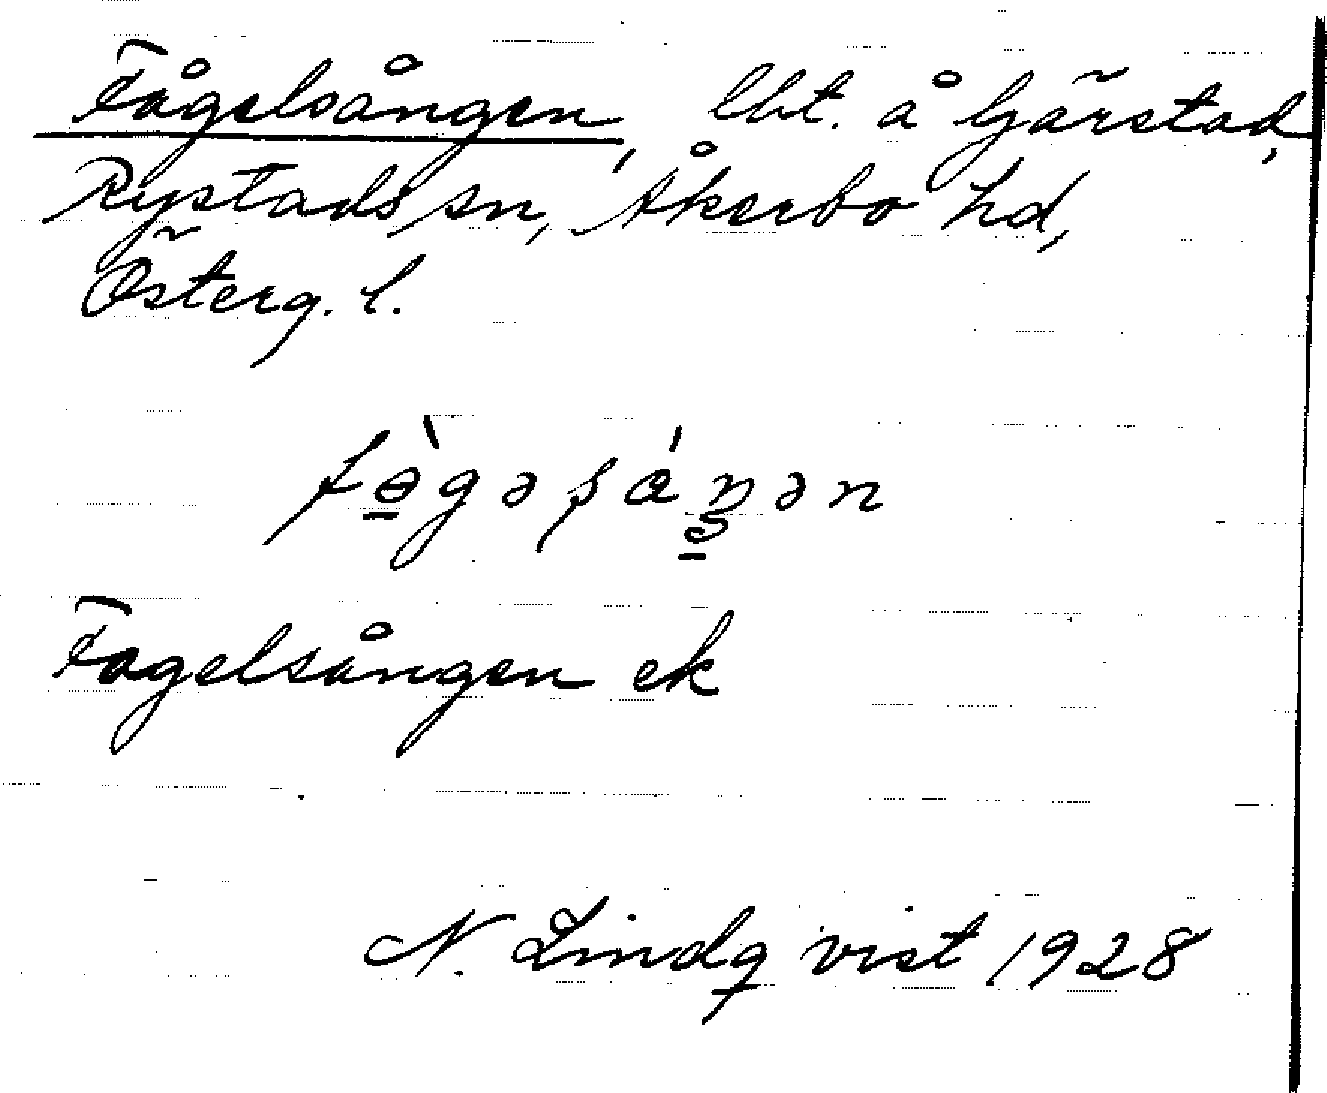 Fågelsången, lht. å Gärstad,
Rystads sn, Åkerbo hd,
Österg. l.
Fågelsången ek
N. Lindqvist 1928